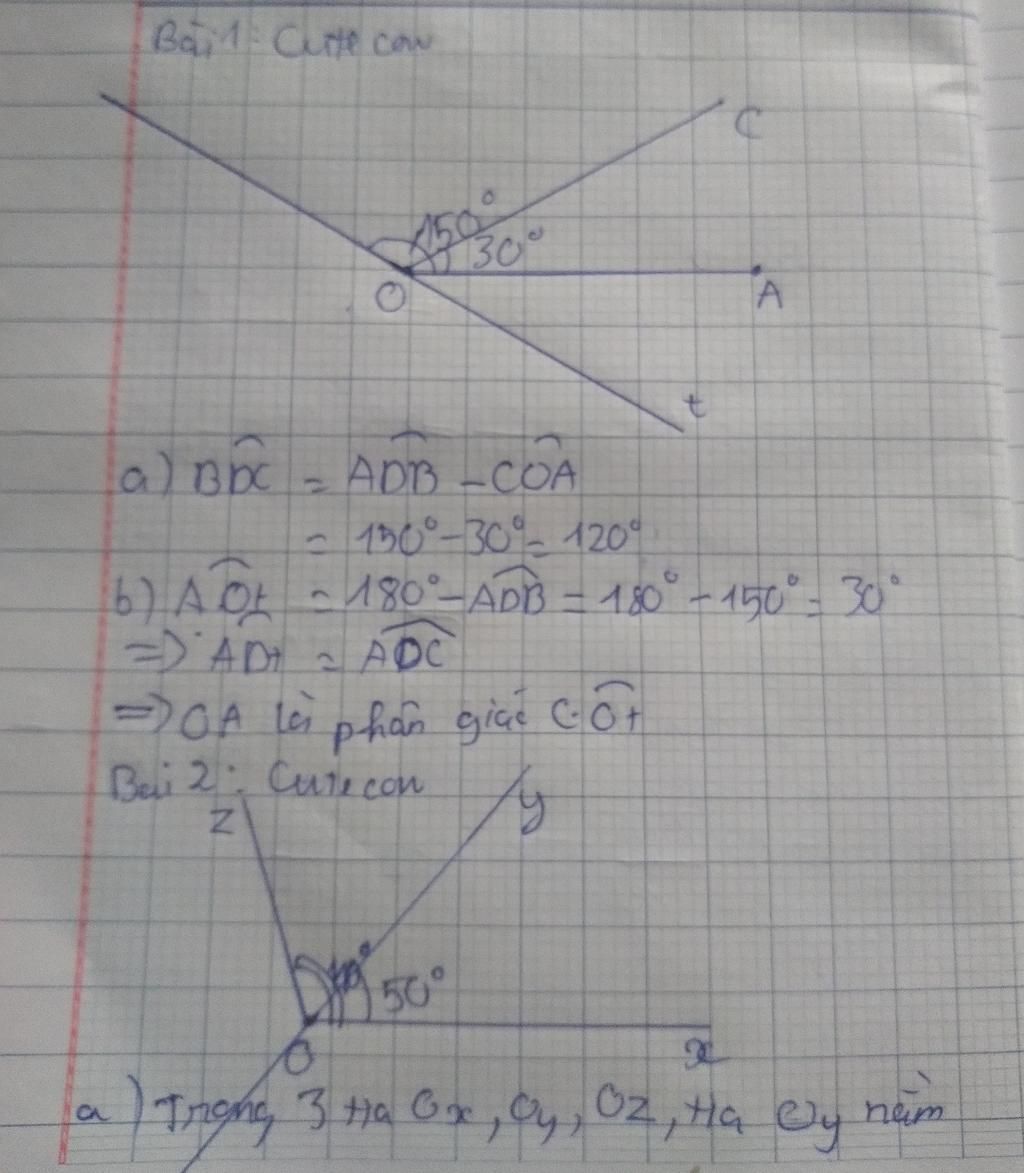 Bài 1: Cute con
C
150°
30°
O
A
t
a) BOC = AOB - COA
= 150° - 30° = 120°
b) AOt = 180° - AOB = 180° - 150° = 30°
=> AOt = AOC
=> OA là phân giác COt
Bài 2: Cute con
z
y
50°
O
x
a) Trong 3 tia Ox, Oy, Oz, tia Oy nằm